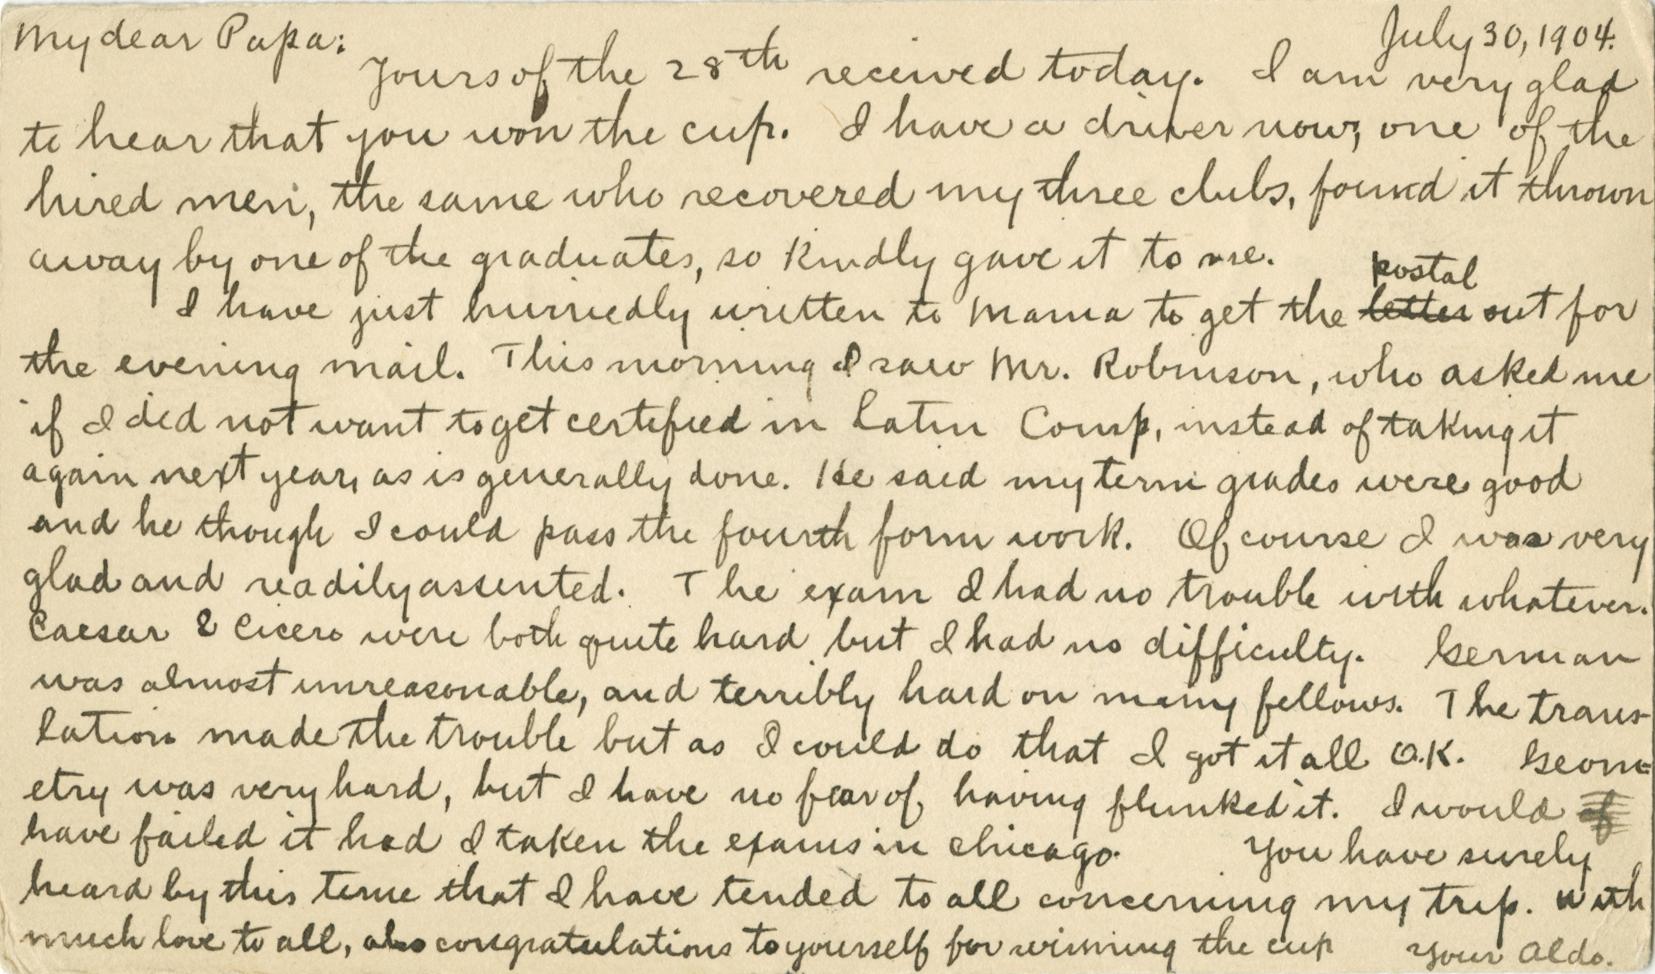 My dear Papa: July 30, 1904.
Yours of the 28th received today. I am very glad
to hear that you won the cup. I have a driver now, one of the
hired men, the same who recovered my three clubs, found it thrown
away by one of the graduates, so kindly gave it to me.
I have just hurriedly written to Mama to get the letter postal out for
the evening mail. This morning I saw Mr. Robinson, who asked me
if I did not want to get certified in Latin Comp, instead of taking it
again next year, as is generally done. He said my term grades were good
and he though I could pass the fourth form work. Of course I was very
glad and readily assented. The exam I had no trouble with whatever.
Caesar & Cicero were both quite hard but I had no difficulty. German
was almost unreasonable, and terribly hard on many fellows. The trans-
lation made the trouble but as I could do that I got it all O.K. Geom-
etry was very hard, but I have no fear of having flunked it. I would of
have failed it had I taken the exams in Chicago. You have surely
heard by this time that I have tended to all concerning my trip. With
much love to all, also congratulations to yourself for winning the cup Your Aldo.